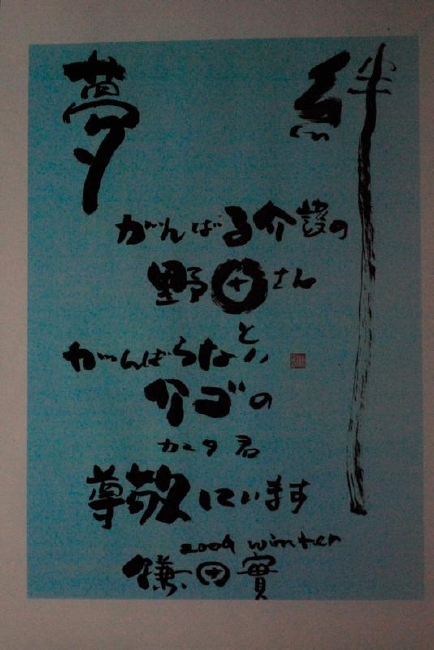 絆
夢
がんばる介護の
野田さん
と
がんばらない
介ゴの
カータ君
尊敬しています
2009 winter
鎌田實